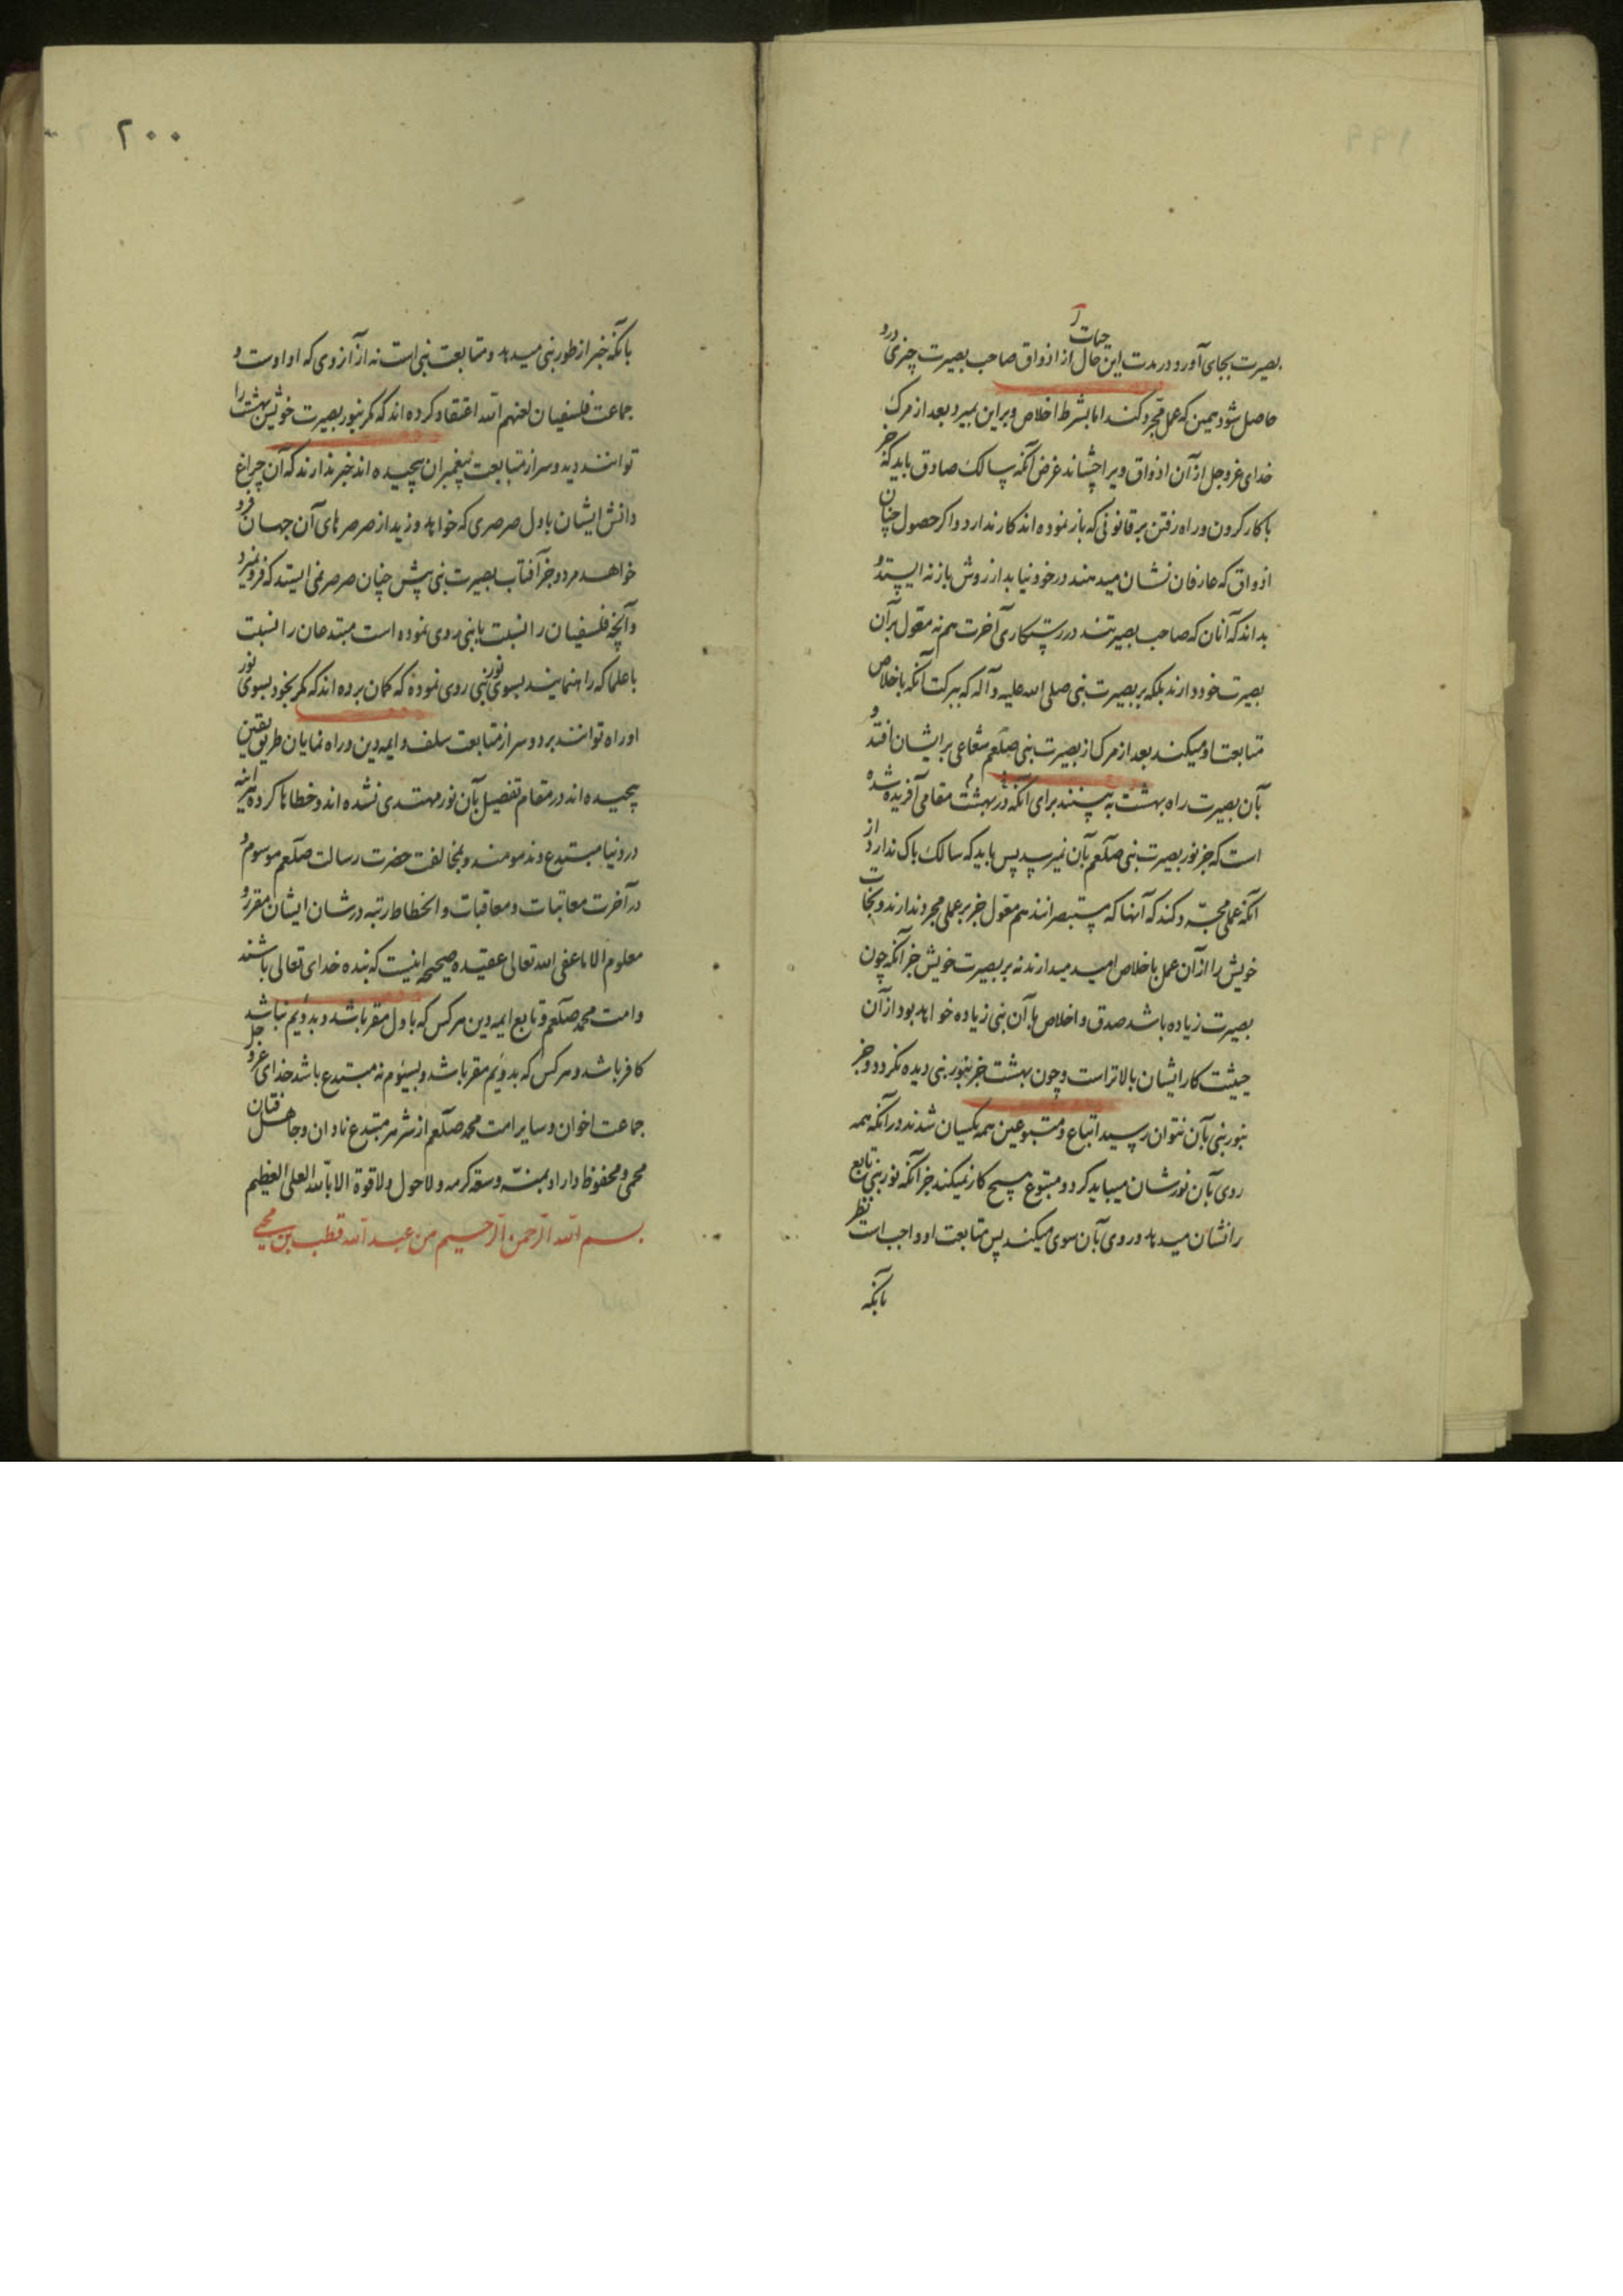 بصیرت بجای آورد و در مدت این حیات حال از اذواق صاحب بصیرت چیزی درو
حاصل شود همین که عمل مجرد کند اما بشرط اخلاص و براین بمیرد بعد از مرک
خدای عزوجل از آن اذواق ویرا چشاند غرض آنکه سالک صادق باید که جز
با کار کردن و راه رفتن بر قانونی که باز نموده اند کار ندارد و اکر حصول چنان
اذواق که عارفان نشان میدهند در خود نیابد از روش باز نه ایستد و
بداند که آنان که صاحب بصیرتند در رستکاری آخرت هم نه معول بر آن
بصیرت خود دارند بلکه بر بصیرت نبی صلی الله علیه و آله که ببرکت آنکه باخلاص
متابعت او میکنند بعد از مرک از بصیرت نبی صلعم شعاعی بر ایشان افتد و
بآن بصیرت راه بهشت به بینند برای آنکه در بهشت مقامی آفریده شده
است که جز نور بصیرت نبی صلعم بآن نمیرسد پس باید که سالک باک ندارد از
آنکه عملی مجرد کند که آنها که مستبصرانند هم معول جز بر عملی مجرد ندارند و نجات
خویش را از آن عمل باخلاص امید میدارند نه بر بصیرت خویش جز آنکه چون
بصیرت زیاده باشد صدق و اخلاص بآن نبی زیاده خواهد بود از آن
حیثیت کار ایشان بالاتر است و چون بهشت جز بنور نبی دیده نکردد و جز
بنور نبی بآن نتوان رسید اتباع و متبوعین همه یکسان شدند در آنکه همه
روی بآن نورشان میباید کرد و متبوع هیچ کار نمیکند جز آنکه نور نبی تابع
را نشان میدهد و روی بآن سوی میکند پس متابعت او واجب است نظر
بآنکه
۲۰۰
بآنکه خبر از طور نبی میدهد و متابعت نبی است نه از آن روی که او اوست و
جماعت فلسفیان لعنهم الله اعتقاد کرده اند که مکر بنور بصیرت خویش بهشت را
توانند دید و سر از متابعت پیغمبران پیچیده اند خبر ندارند که آن چراغ
دانش ایشان باول صرصری که خواهد وزید از صرصرهای آن جهان فرو
خواهد مرد و جز آفتاب بصیرت نبی پیش چنان صرصر نمی ایستد که فرو نمیرد
و آنچه فلسفیان را نسبت بانبی روی نموده است مبتدعان را نسبت
باعلما که راهنمایند بسوی نور نبی روی نموده که کمان برده اند که مکر بخود بسوی نور
او راه توانند برد و سر از متابعت سلف و ایمه دین و راه نمایان طریق یقین
پیچیده اند در مقام تفصیل بآن نور مهتدی نشده اند و خطاها کرده هر اینه
در دنیا مبتدع و مذمومند و بمخالفت حضرت رسالت صلعم موسوم و
در آخرت معاتبات و معاقبات و انحطاط رتبه در شان ایشان مقرر و
معلوم الا ما عفی الله تعالی عقیده صحیحه اینست که بنده خدای تعالی باشند
و امت محمد صلعم و تابع ایمه دین هر کس که باول مقر باشد و بدویم نباشد
کافر باشد و هر کس که بدویم مقر باشد و بسیوم نه مبتدع باشد خدای عز و جل
جماعت اخوان و سایر امت محمد صلعم از شر هر مبتدع نادان و جاهل فتان
محمی و محفوظ داراد بمنه و سعة کرمه و لا حول و لا قوة الا بالله العلی العظیم
بسم الله الرحمن الرحیم من عبد الله قطب بن محیی